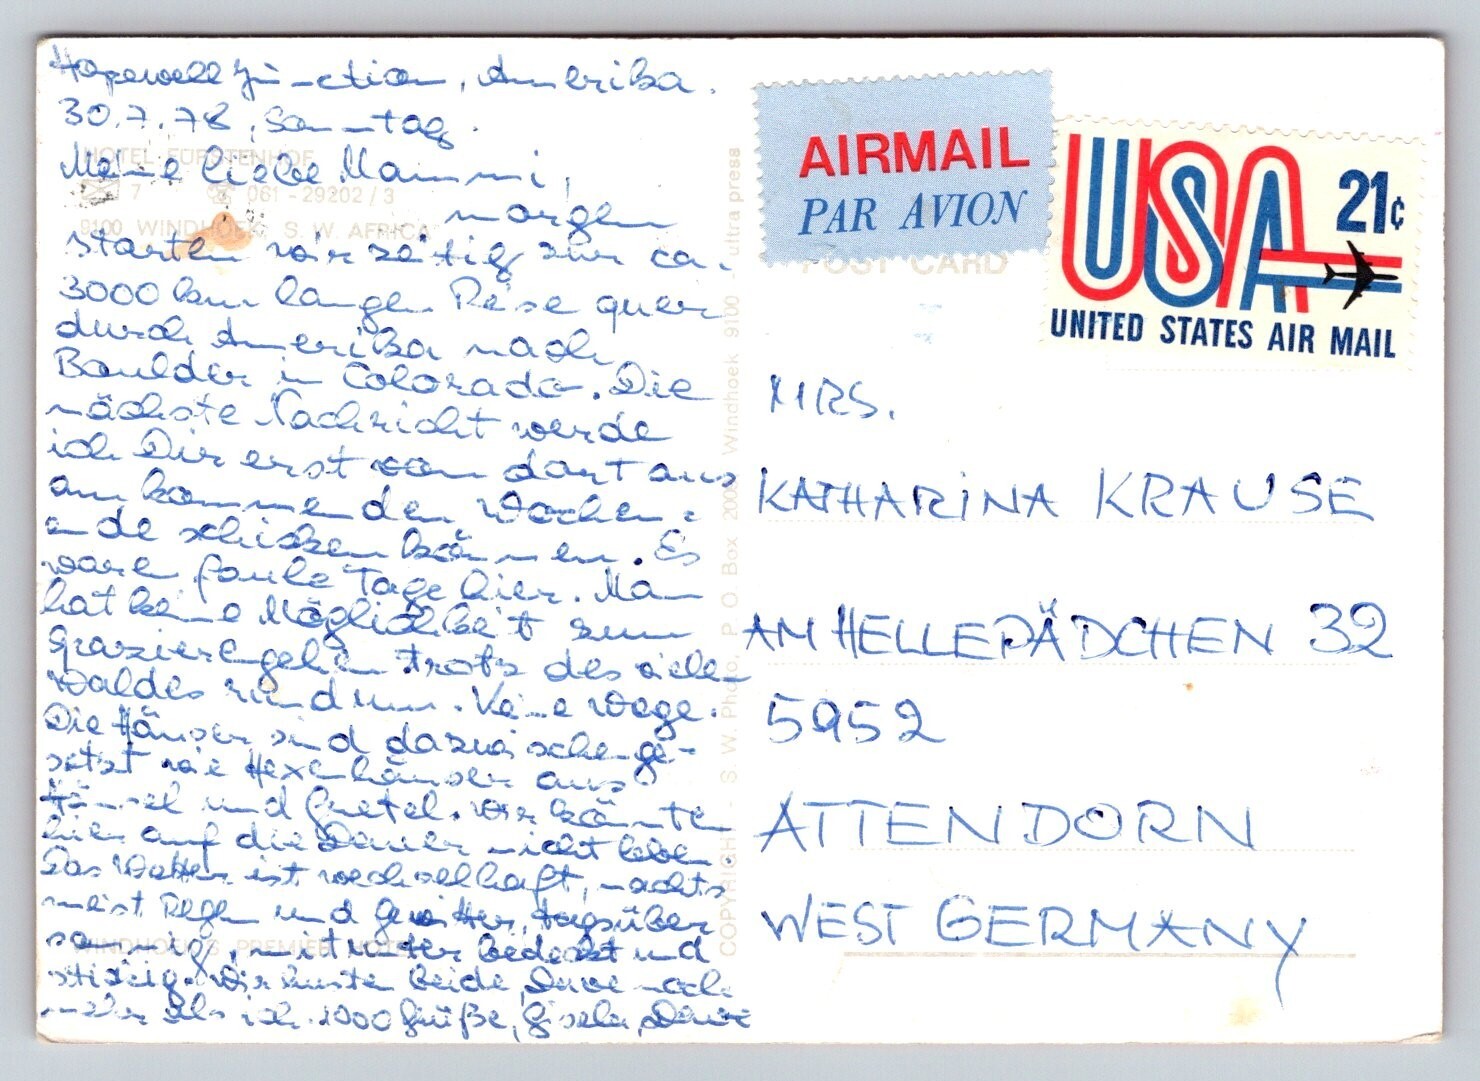 Hopewell Junction, Amerika.
30.7.78, Sonntag.
HOTEL FÜRSTENHOF
Meine liebe Mammi,
7 061 - 29202 / 3
morgen
9100 WINDHOEK S. W. AFRICA
starten wir zeitig zur ca.
3000 km langen Reise quer
durch Amerika nach
Boulder in Colorado. Die
nächste Nachricht werde
ich Dir erst von dort aus
am kommenden Wochen-
ende schicken können. Es
waren faule Tage hier. Man
hat keine Möglichkeit zum
Spazierengehen trotz des vielen
Waldes rundum. Keine Wege.
Die Häuser sind dazwischenge-
setzt wie Hexenhäuser aus
Hänsel und Gretel. Wir könnten
hier auf die Dauer nicht leben.
Das Wetter ist wechselhaft, nachts
meist Regen und Gewitter, tagsüber
sonnig, mitunter bedeckt und
WINDHOEK'S PREMIER HOTEL
stickig. Wir husten beide, Dave noch
mehr als ich. 1000 Grüße, Gisela, Dave
COPYRIGHT - S. W. Photo, P O Box 200 Windhoek 9100 ultra press
AIRMAIL
PAR AVION
POST CARD
USA 21c
UNITED STATES AIR MAIL
MRS.
KATHARINA KRAUSE
AM HELLEPÄDCHEN 32
5952
ATTENDORN
WEST GERMANY